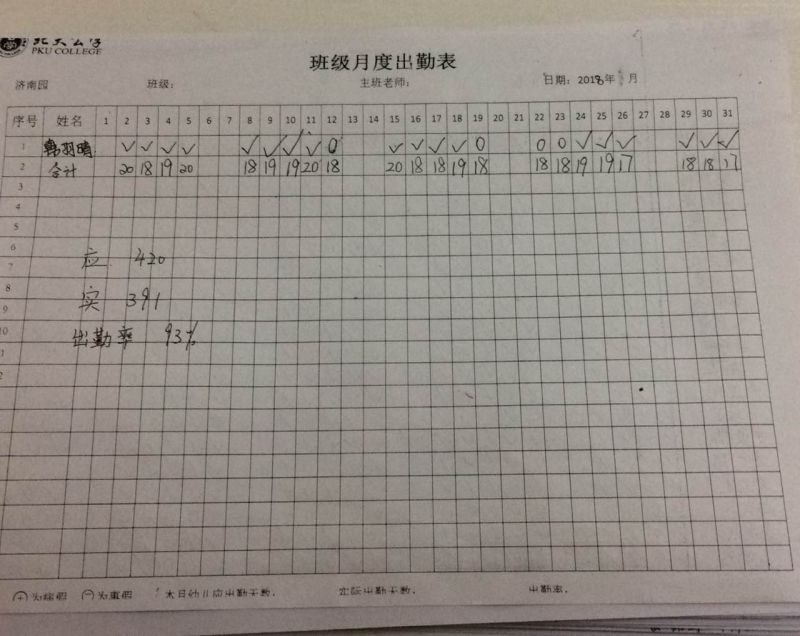 北大公学
PKU COLLEGE
班级月度出勤表
济南园 班级: 主班老师: 日期: 2018年 月
序号 姓名 1 2 3 4 5 6 7 8 9 10 11 12 13 14 15 16 17 18 19 20 21 22 23 24 25 26 27 28 29 30 31
1 韩羽晴 ✓ ✓ ✓ ✓ ✓ ✓ ✓ ✓ 0 ✓ ✓ ✓ ✓ 0 0 0 ✓ ✓ ✓ ✓ ✓ ✓
2 合计 20 18 19 20 18 19 19 20 18 20 18 18 19 18 18 18 19 19 17 18 18 17
3
4
5
6
应 420
7
8
实 391
9
出勤率 93%
为病假 为事假 本月幼儿应出勤天数: 实际出勤天数: 出勤率: